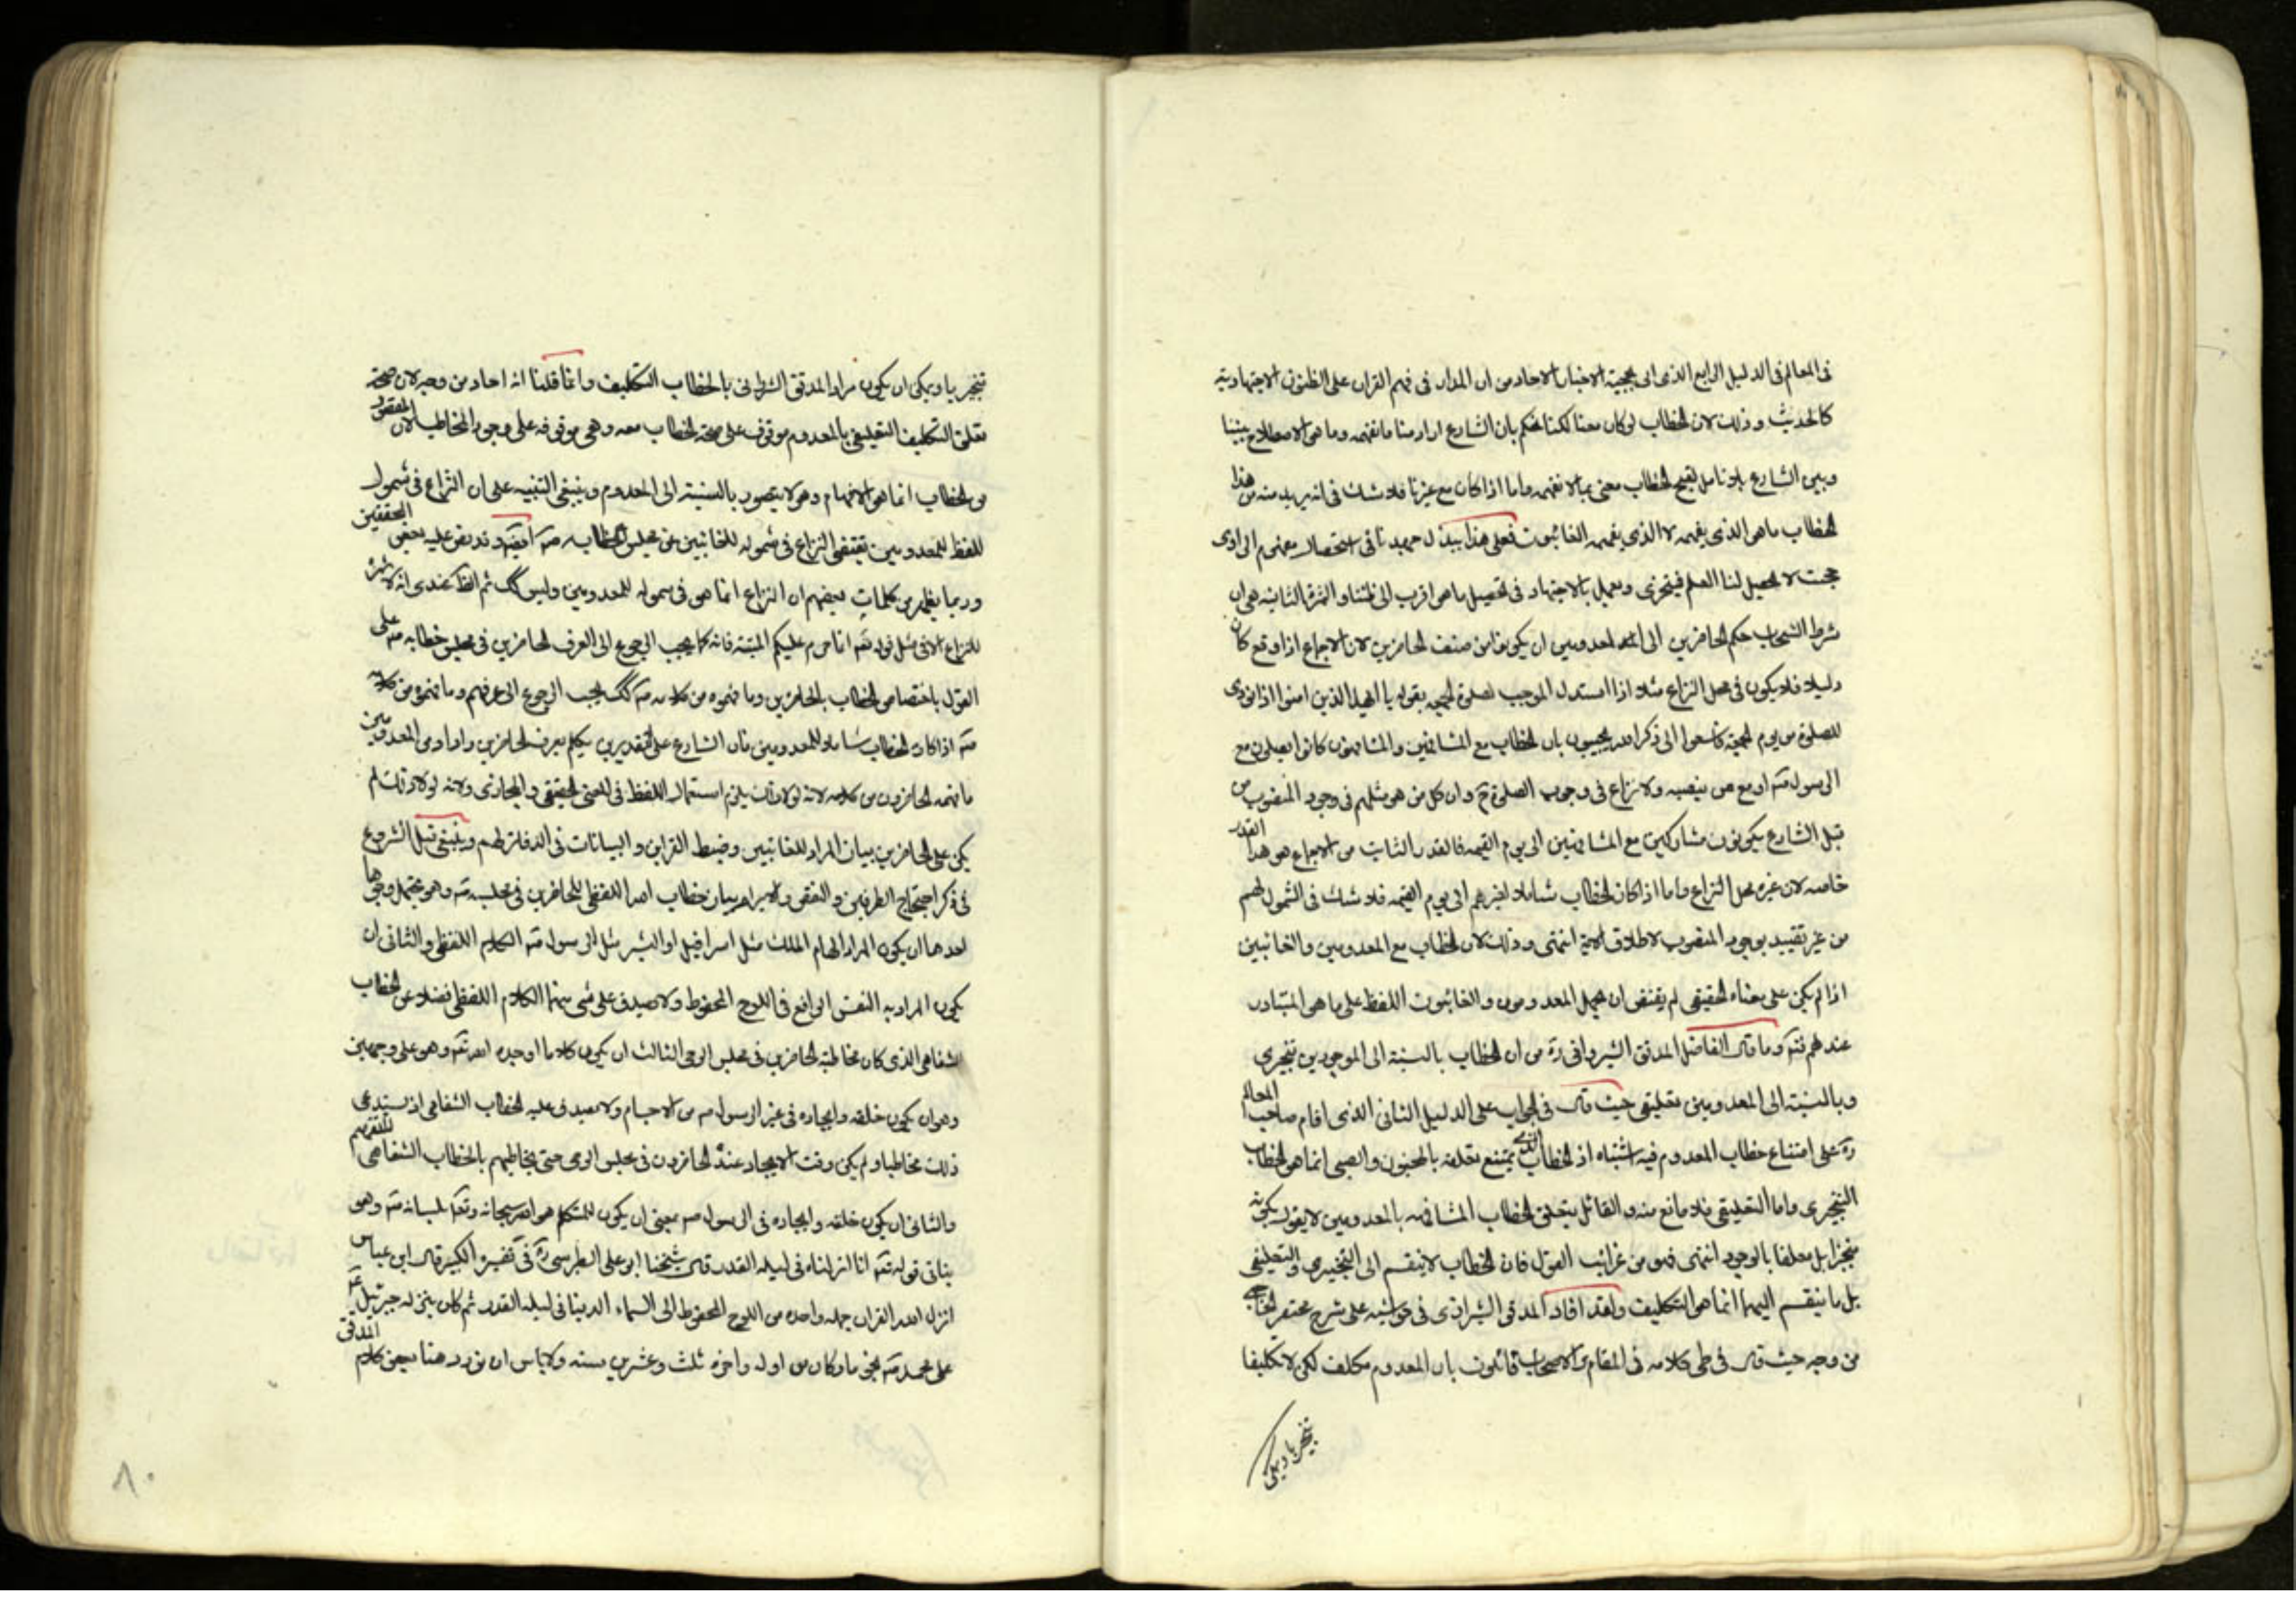 فى المعالم فى الدليل الرابع الذى الى حجية الاخبار الاحاد من ان المدار فى فهم القران على الظنون الاجتهادية
كالحديث وذلك لان الخطاب لو كان معنا لكنا نحكم بان الشارع اراد منا ما نفهمه وما هو الاصطلاح بيننا
وبين الشارع بلا تامل لقبح الخطاب معنى بما لا نفهمه واما اذا كان مع غيرنا فلا شك فى انه يريد منه من هذا
الخطاب ما هو الذى يفهمه لا الذى يفهمه الغائبون فعلى هذا يبذل جهدنا فى استحصال مفهوم الى اوى
حيث لا يحصل لنا العلم فيتحرى ويعمل بالاجتهاد فى تحصيل ما هو اقرب الى ظننا والثمرة الثانية هى ان
شرط انسحاب حكم الحاضرين الى المعدومين ان يكونوا من صنف الحاضرين لان الاجماع اذا وقع كان
دليلا فلا يكون فى محل النزاع مثلا اذا استدل الموجب لصلوة الجمعة بقوله يا ايها الذين امنوا اذا نودى
للصلوة من يوم الجمعة فاسعوا الى ذكر الله يجيبون بان الخطاب مع المشافهين والمشافهون كانوا يصلون مع
الرسول صه او مع من ينصبه ولا نزاع فى وجوب الصلوة ح وان كل من هو مثلهم فى وجود المنصوب من
قبل الشارع يكونون مشاركين مع المشافهين الى يوم القيمه فالقدر الثابت من الاجماع هو هذا القدر
خاصه لان غيره محل النزاع واما اذا كان الخطاب شاملا لغيرهم الى يوم القيمه فلا شك فى الشمول لهم
من غير تقييد بوجود المنصوب لاطلاق الاية انتهى وذلك لان الخطاب مع المعدومين والغائبين
اذا لم يكن على معناه الحقيقى لم يقتض ان يحمل المعدومون والغائبون اللفظ على ما هو المتبادر
عندهم فته وما قال الفاضل المدقق الشيروانى ره من ان الخطاب بالنسبة الى الموجودين تنجيزى
وبالنسبة الى المعدومين تعليقى حيث قال فى الجواب على الدليل الثانى الذى اقام صاحب المعالم
ره على امتناع خطاب المعدوم فيه اشتباه اذ الخطاب الذى يمتنع تعلقه بالمجنون والصبى انما هو الخطاب
التنجيزى واما التعليقى فلا مانع منه والقائل بتعلق الخطاب المشافهه بالمعدومين لا يقول بكونه
منجزا بل معلقا بالوجود انتهى فهو من غرائب القول فان الخطاب لا ينقسم الى التنجيزى والتعليقى
بل ما ينقسم اليهما انما هو التكليف ولقد افاد المدقق الشيرازى فى حواشيه على شرح مختصر
من وجه حيث قال فى طى كلامه فى المقام والاصحاب قائلون بان المعدوم مكلف لكن لا تكليفا
تنجيزيا ويمكن
تنجيزيا ويمكن ان يكون مراد المدقق الشيروانى بالخطاب التكليف وانما قلنا انه اجاد من وجه لان صحة
تعلق التكليف التعليقى بالمعدوم موقوف على صحة الخطاب معه وهى موقوفه على وجود المخاطب لان المقصود
من الخطاب انما هو الافهام وهو لا يتصور بالنسبة الى المعدوم وينبغى التنبيه على ان النزاع فى شمول
اللفظ للمعدومين يقتضى النزاع فى شموله للغائبين عن مجلس الخطاب صه ايضا وقد نص عليه بعض المحققين
وربما يظهر من كلمات بعضهم ان النزاع انما هو فى شموله للمعدومين وليس كك ثم الظ عندى انه لا ثمرة
للنزاع الا فى مثل قوله تعه انما حرم عليكم الميتة فانه كما يجب الرجوع الى العرف الحاضرين فى مجلس خطابه صه على
القول باختصاص الخطاب بالحاضرين وما فهموه من كلامه صه كك يجب الرجوع الى عرفهم وما فهموه من كلامه
صه اذا كان الخطاب شاملا للمعدومين فان الشارع على التقديرين يتكلم بعرف الحاضرين واراد من المعدومين
ما فهمه الحاضرون من كلامه لانه لولا ذلك يلزم استعمال اللفظ فى المعنى الحقيقى والمجازى ولانه لولا ذلك لم
يكن على الحاضرين بيان المراد للغائبين وضبط القراين والبيانات فى الدفاتر لهم وينبغى قبل الشروع
فى ذكر احتجاج الطرفين والنقض والابرام بيان خطاب الله اللفظى للحاضرين فى مجلسه صه وهو يحتمل وجوها
احدها ان يكون المراد الهام الملك مثل اسرافيل او البشر مثل الرسول صه الكلام اللفظى والثانى ان
يكون المراد به النقش الواقع فى اللوح المحفوظ ولا يصدق على شى منهما الكلام اللفظى فضلا عن الخطاب
الشفاهى الذى كان مخاطبة الحاضرين فى مجلس الوحى الثالث ان يكون كلاما اوجده الله تعه وهو على وجهين
وهو ان يكون خلقه وايجاده فى غير الرسول صه من الاجسام ولا يصدق عليه الخطاب الشفاهى اذ يستدعى
ذلك مخاطبا ولم يكن وقت الايجاد عنده الحاضرون فى مجلس الوحى حتى يخاطبهم بالخطاب الشفاهى للتفهيم
والثانى ان يكون خلقه وايجاده فى الرسول صه بمعنى ان يكون المتكلم هو الله سبحانه وتعه بلسانه صه وهو
ينافى قوله تعه انا انزلناه فى ليلة القدر قال شيخنا ابو على الطبرسى ره فى تفسيره الكبير قال ابن عباس
انزل الله القران جملة واحدة من اللوح المحفوظ الى السماء الدنيا فى ليلة القدر ثم كان ينزله جبرئيل عه
على محمد صه نجوما وكان من اوله واخره ثلث وعشرين سنه ولا باس ان نورد هنا بعض كلام المدقق
٨٠